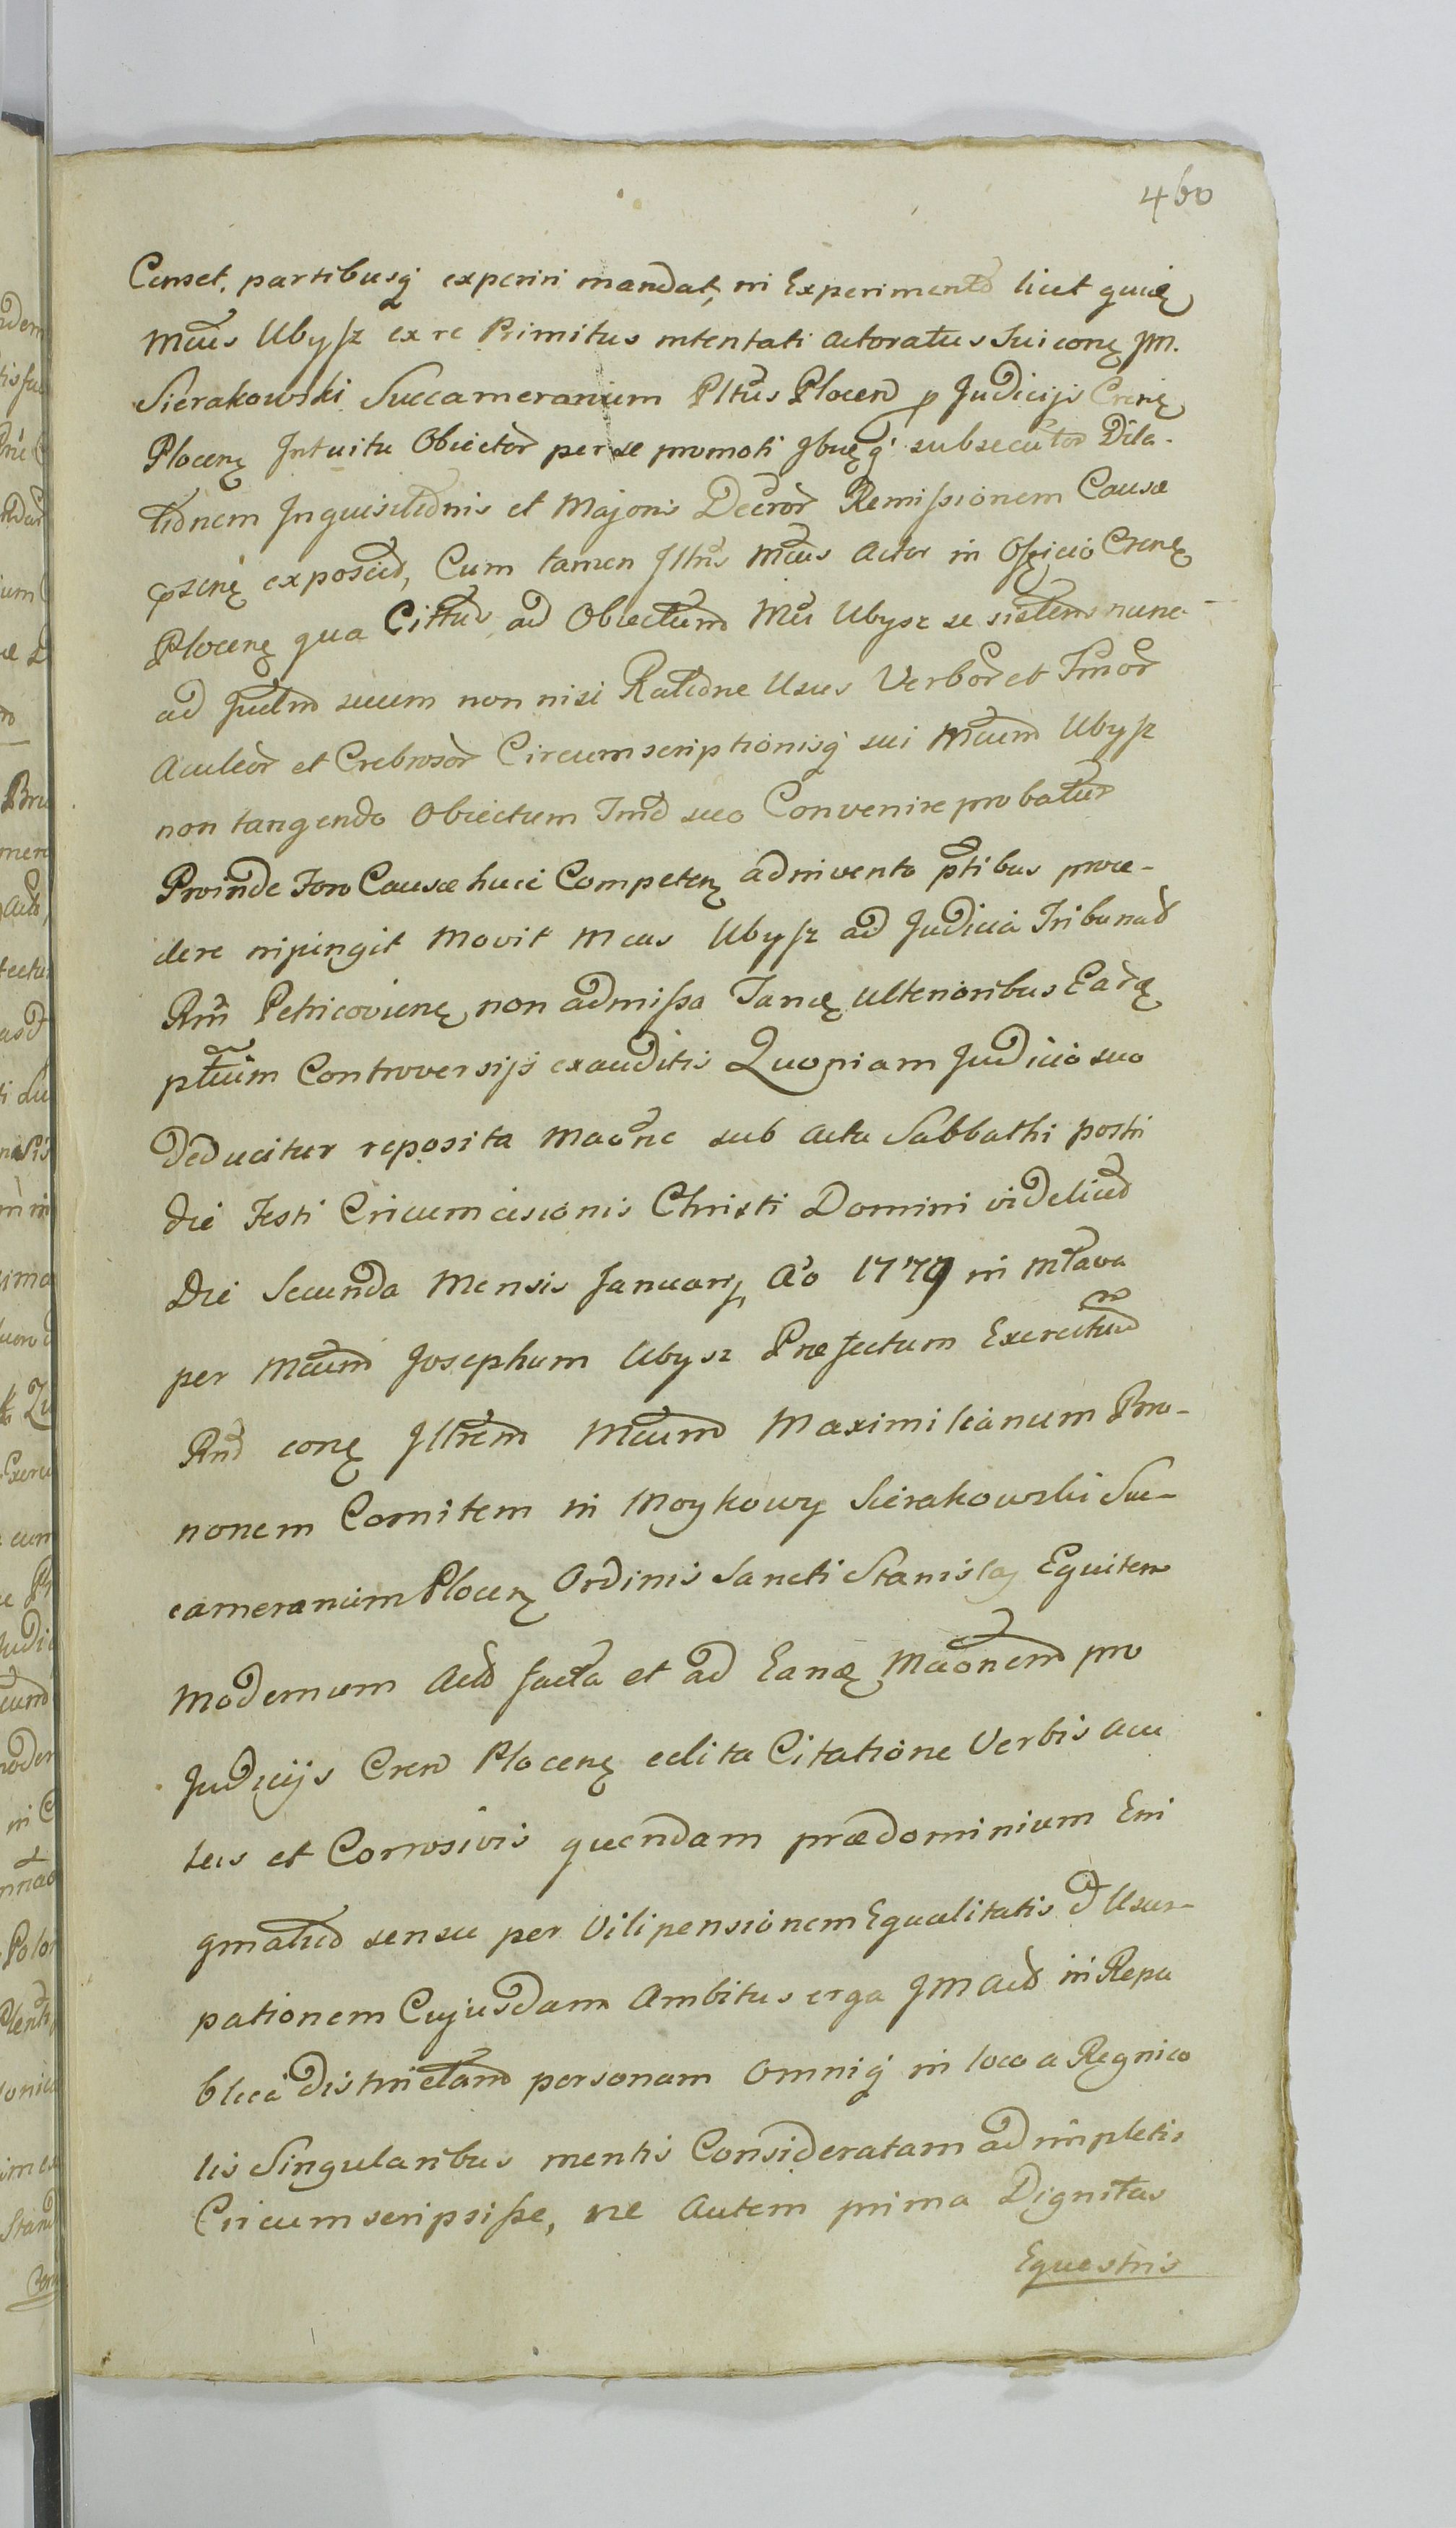 460
Censet, partibusq experiri mandat, in Experimento licet quidę
Mcus Ubysz ex re Primitus intentati Actoratus sui conę JM.
Sierakowski Succamerarium Pltus Plocen p Judicijs Crenę
Plocenę Intuitu Obiector per se promoti Ibuęq subsecutor Dila-
tionem Inquisitionis et Majoris Decror Remissionem Causæ
pszenę exposcit, Cum tamen Illris Mcus Actor in Officio Crenę
Plocenę qua Cittus ad Obiectum Mci Ubysz se sistens nunc
ad Juclm suum non nisi Ratione Usus Verbor et Tmor
Aculeor et Crebrosor Circumscriptionisq sui Mcum Ubysz
non tangendo Obiectum Tmo suo Convenire probatur
Proinde Foro Causæ huic Competenę adinvento ptibus proce-
dere injungit Movit Mcus Ubysz ad Judicia Tribunad
Rni Petricovienę non admissa Tandę ulterioribus Earę
ptium Controversijs exauditis Quoniam Judicio suo
deducitur reposita Maone sub actu Sabbathi postri
die Festi Cricumcisionis Christi Domini videlicet
Die Secunda Mensis Januarij Ao 1779 in Mława
per Mcum Josephum Ubysz Præfectum Exercitus
Rni conę Illrem Mcum Maximilianum Bro-
nonem Comitem in Moykowy Sierakowski Suc-
camerarium Plocenę Ordinis Sancti Stanislaj Equitem
modernum Actd facta et ad Eanę Maonem pro
Judicijs Cren Plocenę edita Citatione Verbis acu
leis et Corrosivis quendam prædominium Eni
gmatico sensu per Vilipensionem Equalitatis et Usur-
pationem Cujusdam Ambitus erga JM Actd in Repu
blica distinctam personam omniq in loco a Regnico
lis Singularibus mentis Consideratam adimpletis
Cricumscripsisse, ne Autem prima Dignitas
Equestris